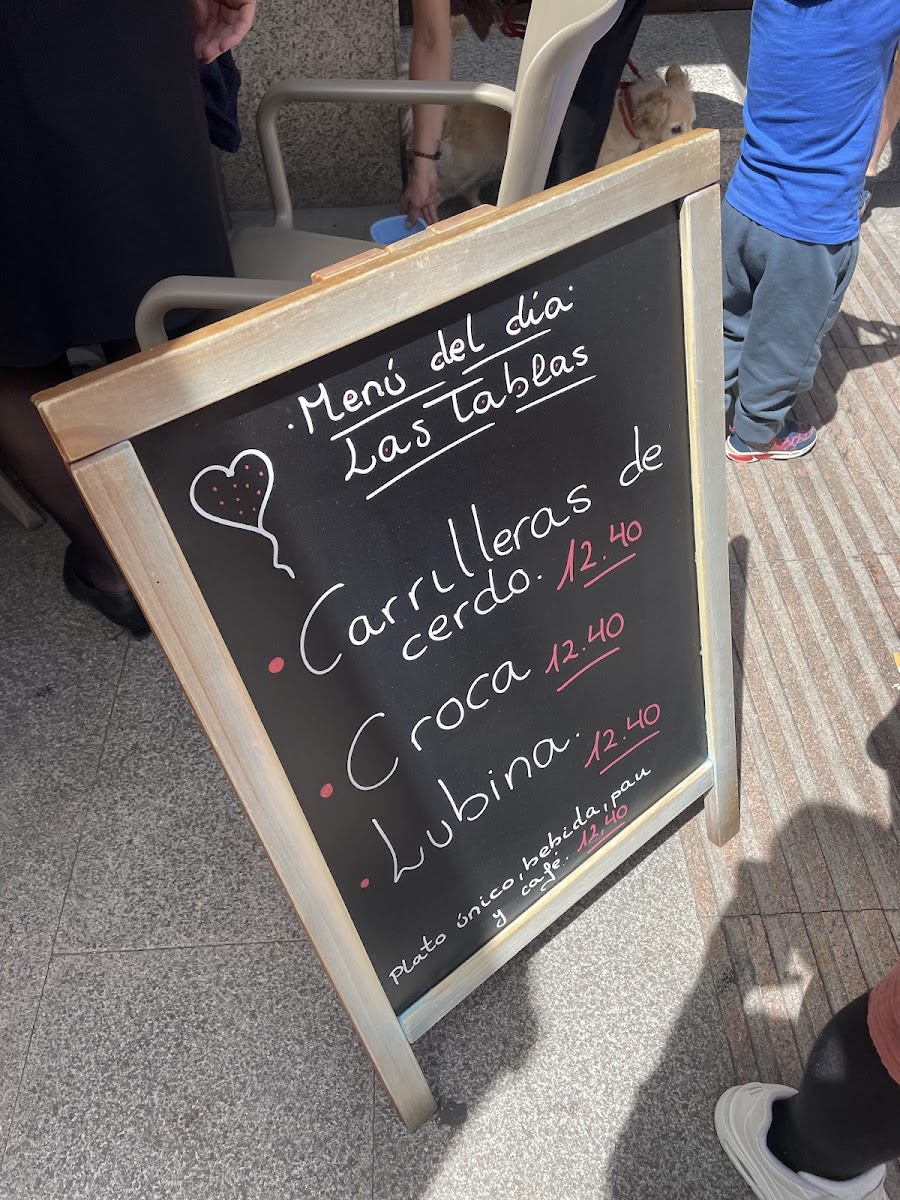 . Menú del día.
Las Tablas
• Carrilleras de
cerdo. 12.40
• Croca 12.40
• Lubina. 12.40
Plato único, bebida, pan
y café. 12,40